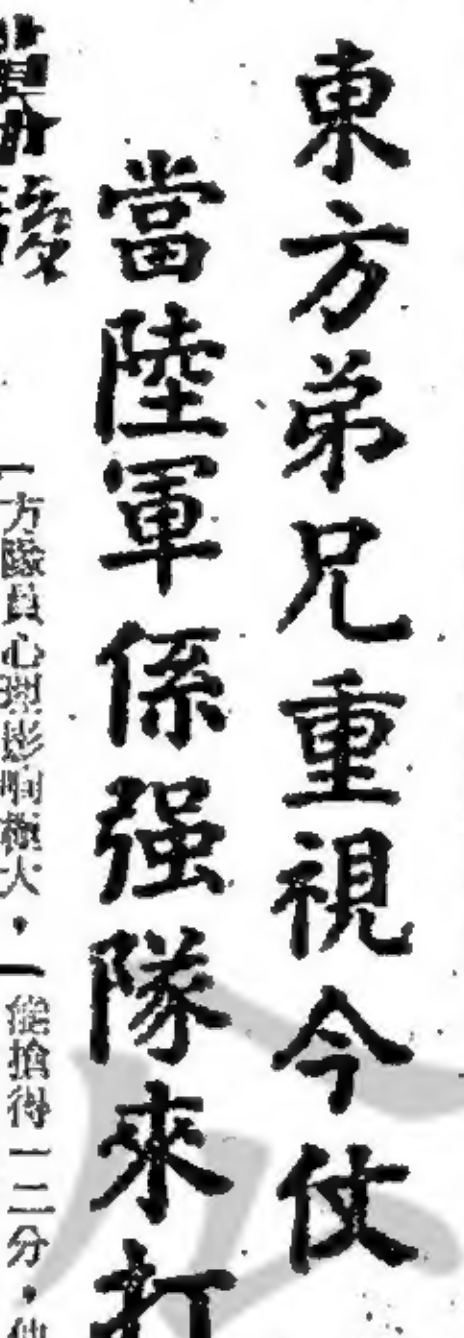 東方弟兄重視今仗
當陸軍係强隊來打
方隊員心理影响極大，
能搶得一二分，他